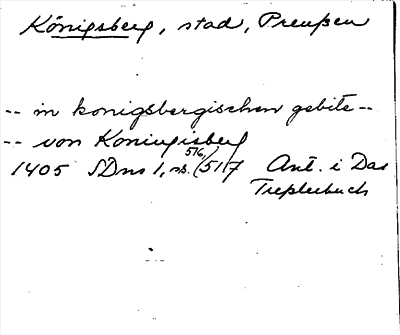 Königsberg, stad, Preußen
-- in konigsbergischen gebite --
-- von Koningisberg
1405 SDns 1, ns. 516, (517 Ant. i Das
Treßlerbuch